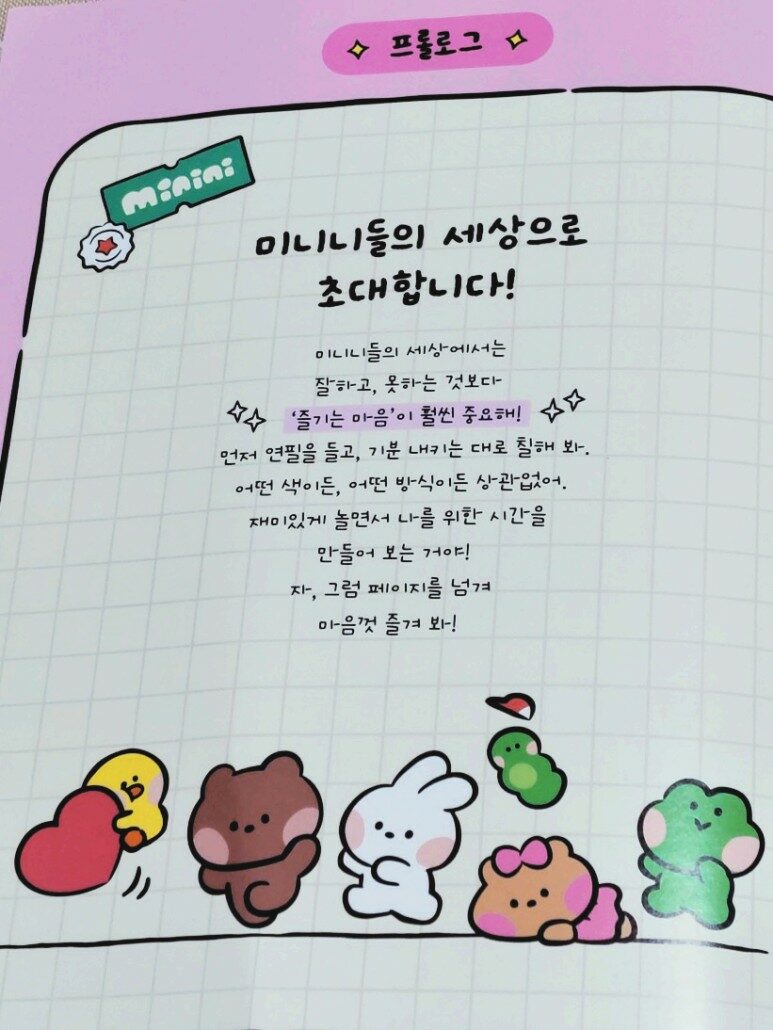 프롤로그
minini
미니니들의 세상으로
초대합니다!
미니니들의 세상에서는
잘하고, 못하는 것보다
'즐기는 마음'이 훨씬 중요해!
먼저 연필을 들고, 기분 내키는 대로 칠해 봐.
어떤 색이든, 어떤 방식이든 상관없어.
재미있게 놀면서 나를 위한 시간을
만들어 보는 거야!
자, 그럼 페이지를 넘겨
마음껏 즐겨 봐!